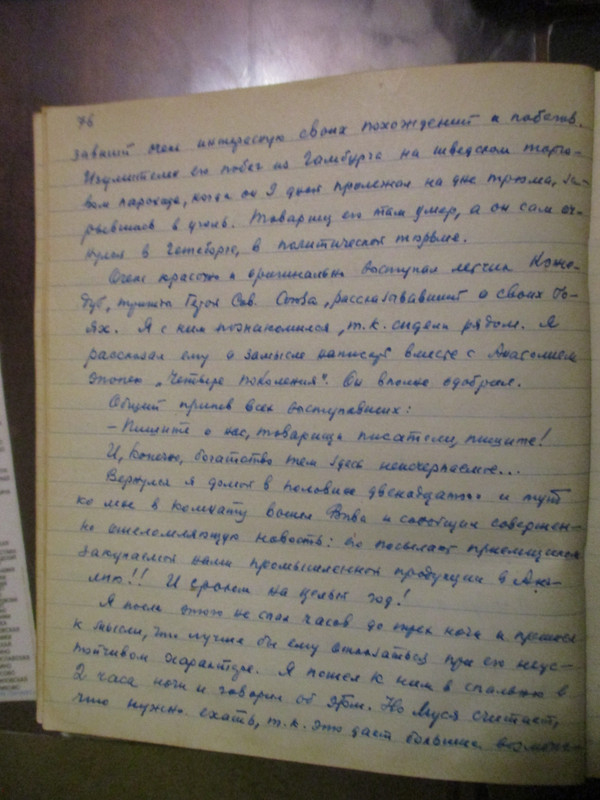 76
завший очень интересную своих похождений и побегов.
Изумителен его побег из Гамбурга на шведском торго-
вом пароходе, когда он 9 дней пролежал на дне трюма, за-
рывшись в уголь. Товарищ его там умер, а он сам оч-
нулся в Гетеборге, в политической тюрьме.
Очень красочно и оригинально выступал летчик Коже-
дуб, трижды Герой Сов. Союза, рассказывавший о своих бо-
ях. Я с ним познакомился, т.к. сидели рядом. Я
рассказал ему о замысле написать вместе с Анатолием
эпопею „Четыре поколения". Он вполне одобрил.
Общий припев всех выступавших:
– Пишите о нас, товарищи писатели, пишите!
И, конечно, богатство тем здесь неисчерпаемое...
Вернулся я домой в половине двенадцатого и тут
ко мне в комнату вошел Вива и сообщил совершен-
но ошеломляющую новость: его посылают приемщиком
закупаемой нами промышленной продукции в Анг-
лию!! И сроком на целый год!
Я после этого не спал часов до трех ночи и пришел
к мысли, что лучше бы ему отказаться при его неус-
тойчивом характере. Я пошел к ним в спальню в
2 часа ночи и говорил об этом. Но Муся считает,
что нужно ехать, т.к. это дает большие возможно-